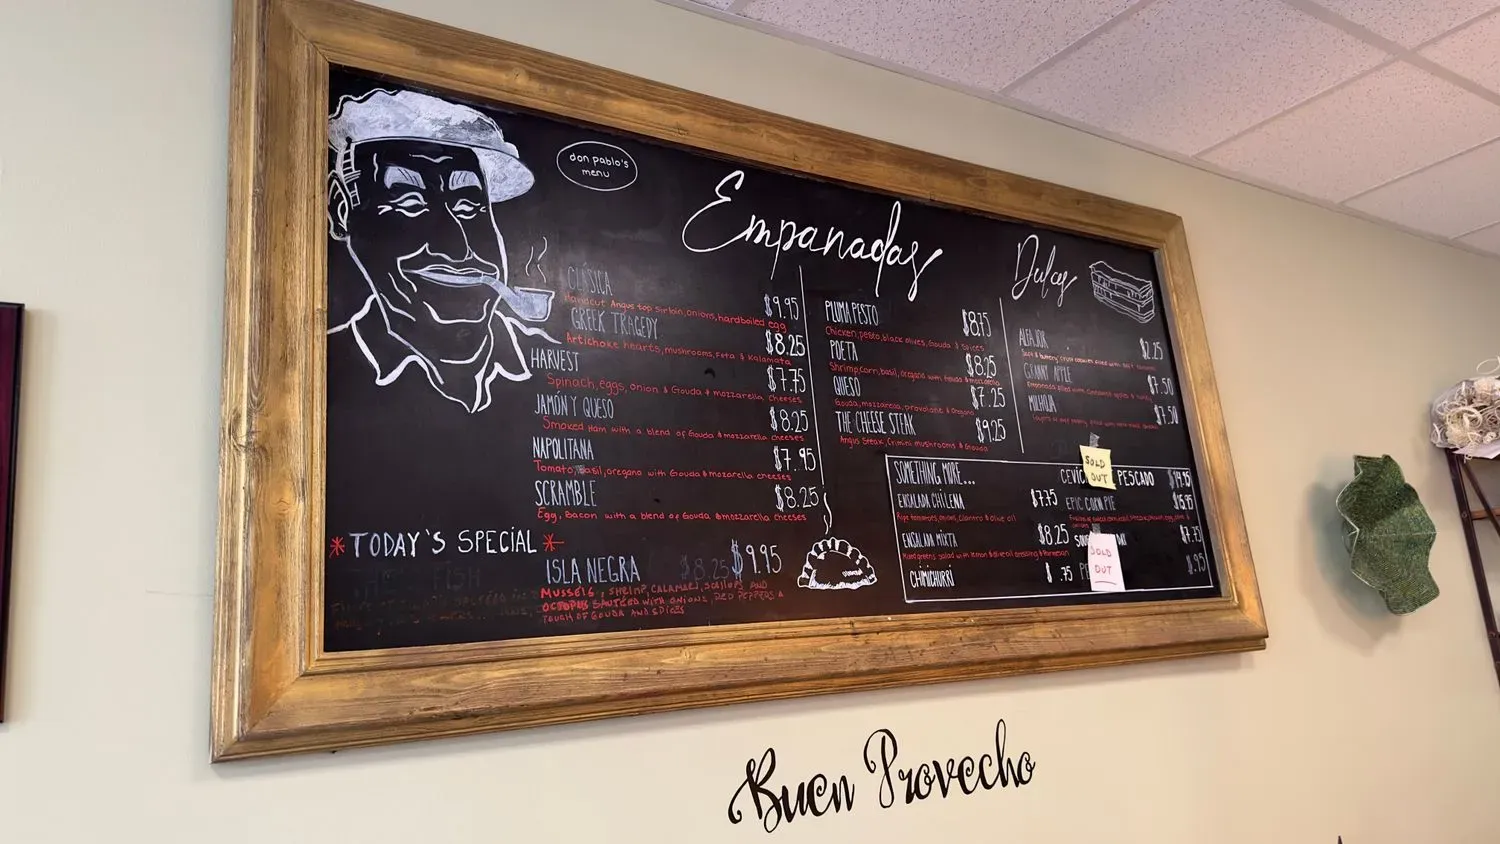 don pablo's
menu
Empanadas
CLÁSICA $9.95
Handcut Angus top sirloin, onions, hardboiled egg
GREEK TRAGEDY $8.25
Artichoke hearts, mushrooms, Feta & Kalamata
HARVEST $7.75
Spinach, eggs, onion & Gouda & mozzarella cheeses
JAMÓN Y QUESO $8.25
Smoked Ham with a blend of Gouda & mozzarella cheeses
NAPOLITANA $7.95
Tomato, Basil, oregano with Gouda & mozzarella cheeses
SCRAMBLE $8.25
Egg, Bacon with a blend of Gouda & mozzarella cheeses
PLUMA PESTO $8.75
Chicken, pesto, black olives, Gouda & spices
POETA $8.25
Shrimp, corn, basil, oregano with Gouda & mozzarella
QUESO $7.25
Gouda, mozzarella, provolone & Oregano
THE CHEESE STEAK $9.25
Angus Steak, Crimini mushrooms & Gouda
Dulces
ALFAJOR $2.25
GRANNY APPLE $7.50
Empanada filled with
MILHOJA $7.50
SOMETHING MORE...
ENSALADA CHILENA $7.75
Ripe tomatoes, onions, cilantro & olive oil
ENSALADA MIXTA $8.25
Mixed greens salad with lemon & olive oil dressing & Parmesan
CHIMICHURRI $.75
PESCADO
SOLD
OUT
EPIC CORN PIE
SOLD
OUT
*TODAY'S SPECIAL*
ISLA NEGRA $8.25 $9.95
MUSSELS, SHRIMP, CALAMARI, SCALLOPS AND
OCTOPUS SAUTÉED WITH ONIONS, RED PEPPERS A
TOUCH OF GOUDA AND SPICES
Buen Provecho